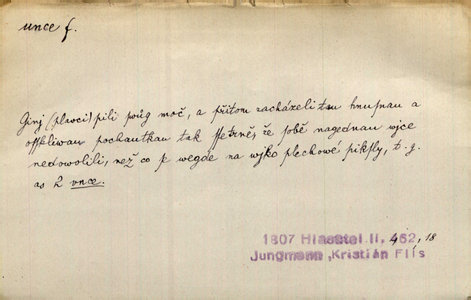 unce f.
Ginj (plavci) pili swůg moč, a přitom zacházeli tau hnusnau a
ossklivau pochautkau tak ssetrně, že sobě nagednau wjce
nedowolili, než co se wegde na wjko plechowé piksly, t. g.
as 2 vnce.
1807 Hlasatel II, 462, 18
Jungmann, Kristián Flís